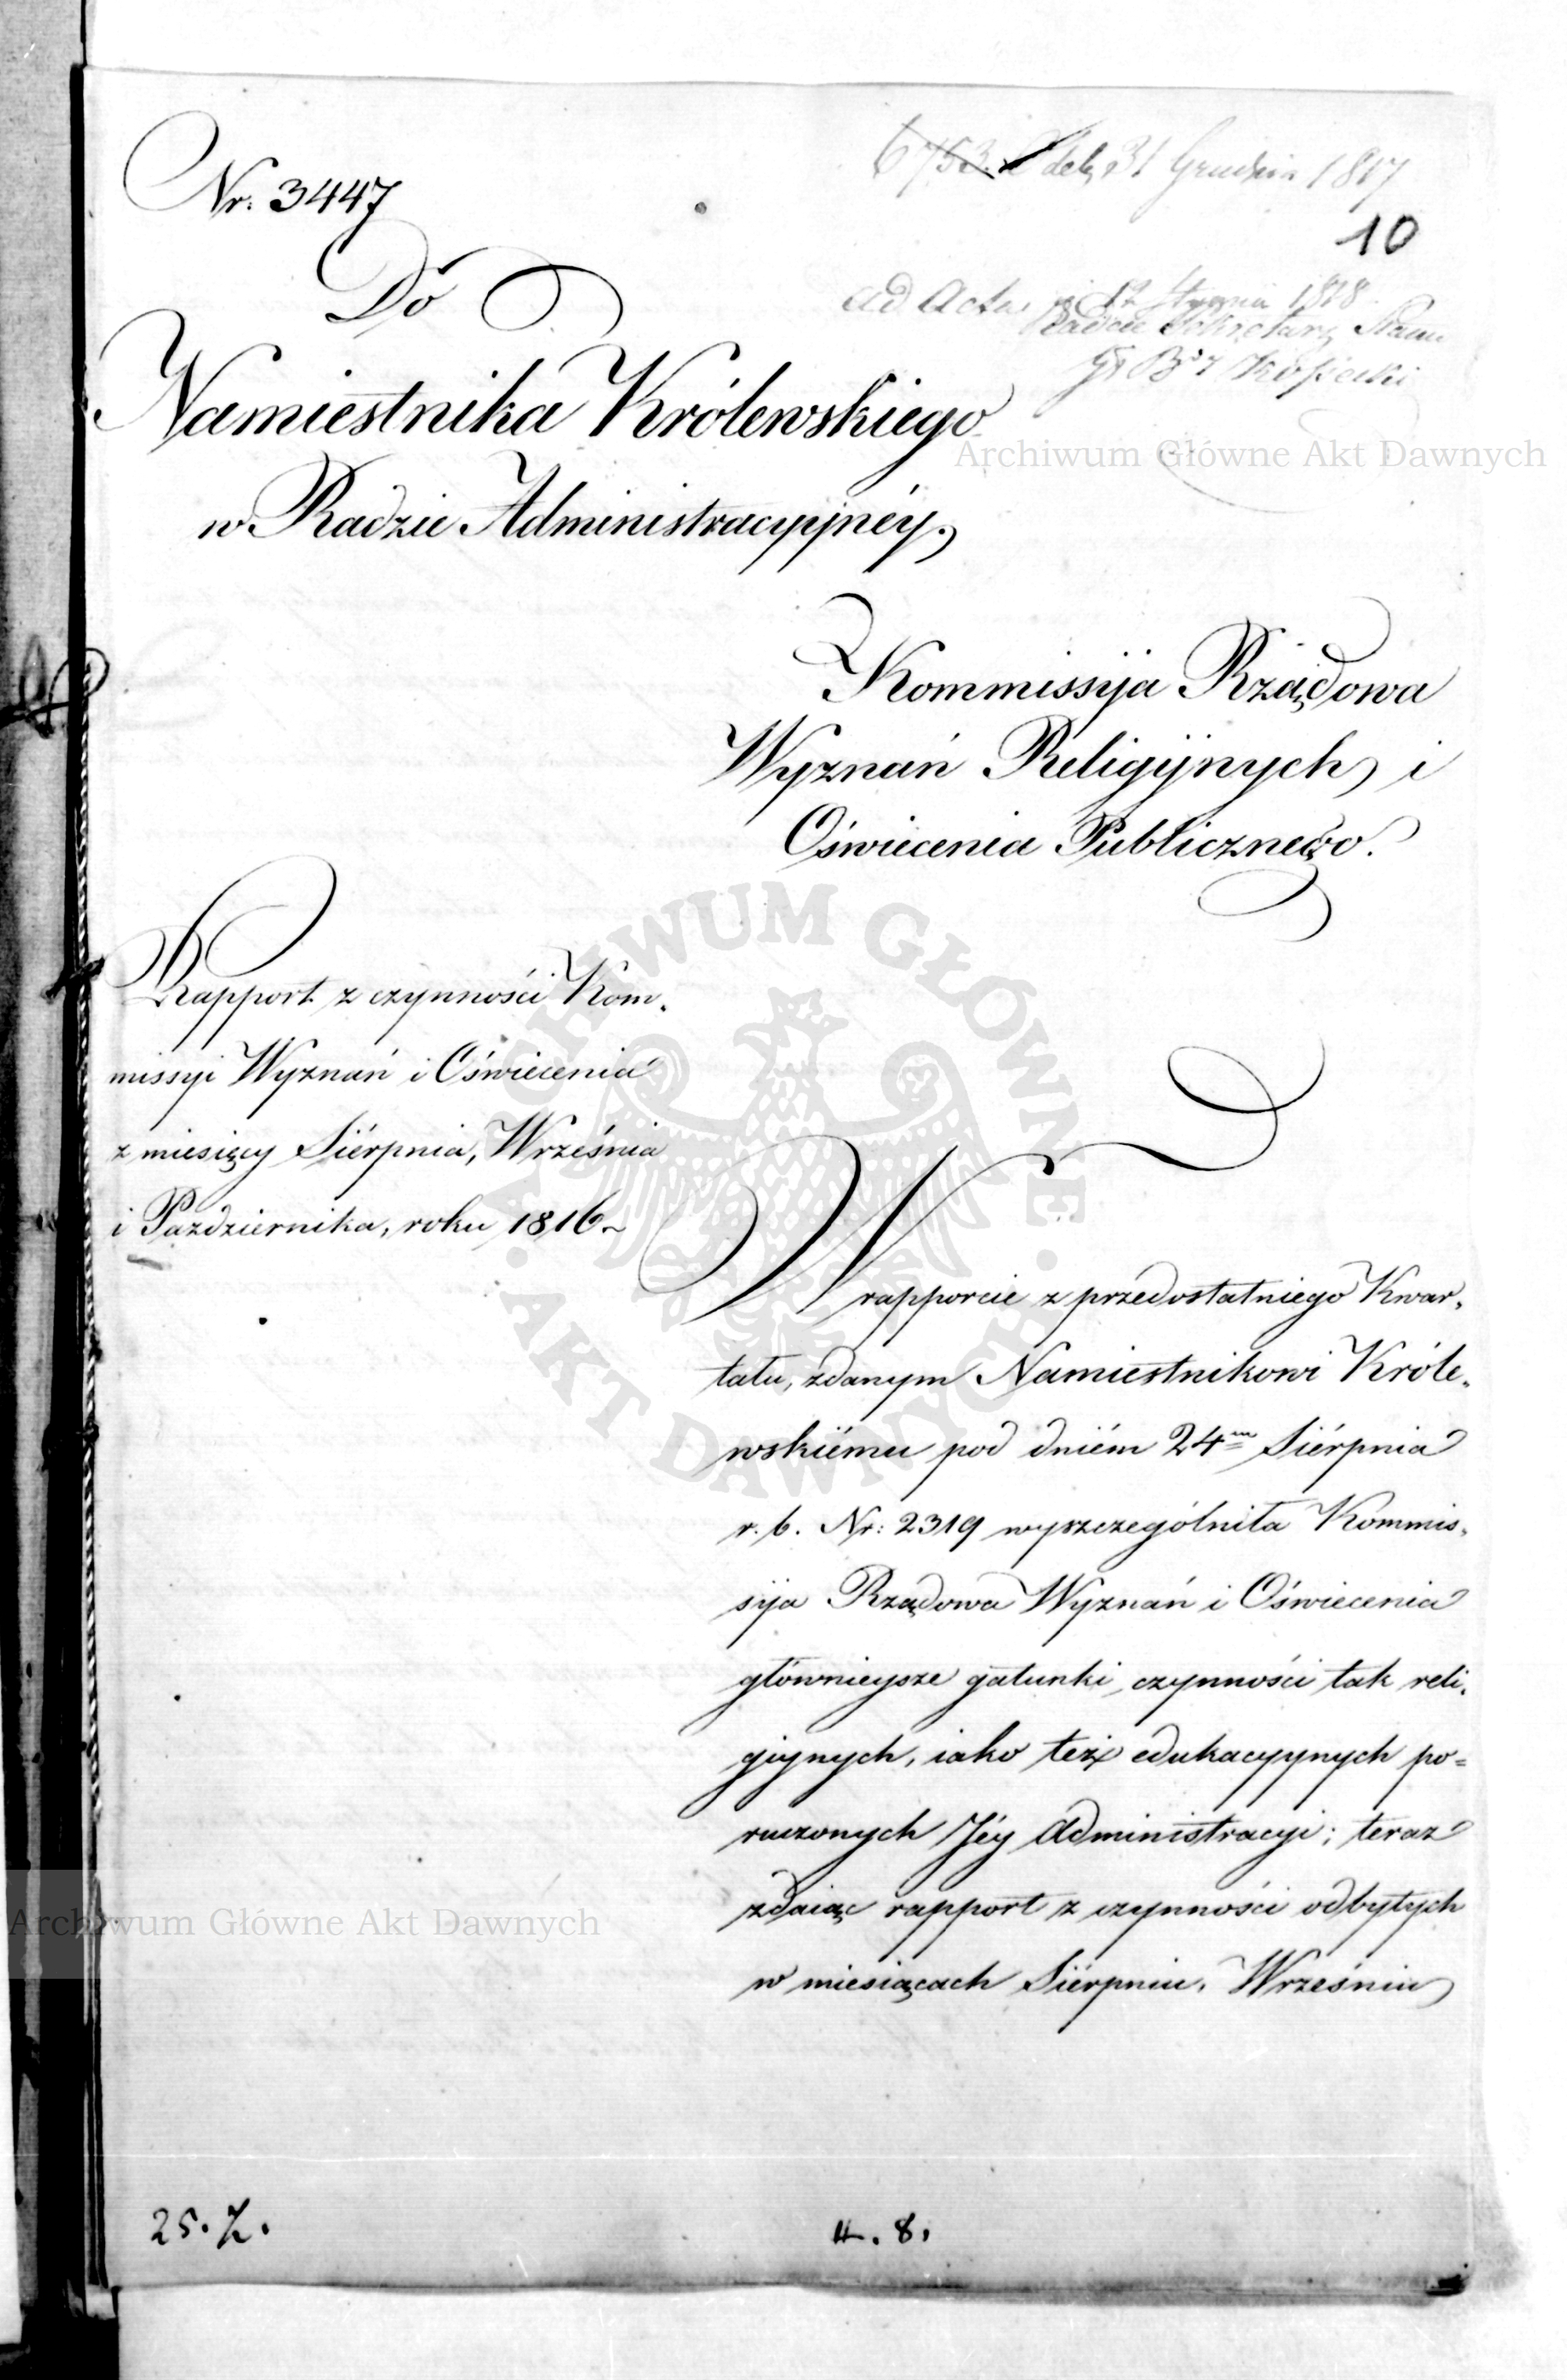 Nr. 3447
31 Grudnia 1817
10
Do
ad Acta 12 Stycznia 1818
Namiestnika Królewskiego
w Radzie Administracyyney.
Archiwum Główne Akt Dawnych
Kommissyia Rządowa
Wyznań Religiynych i
Oświecenia Publicznego.
ARCHIWUM GŁÓWNE
AKT DAWNYCH
Rapport z czynności Kom-
missyi Wyznań i Oświecenia
z miesięcy Siérpnia, Września
i Października, roku 1816
W rapporcie z przedostatniego Kwar-
tału, zdanym Namiestnikowi Króle-
wskiému pod dniém 24m Siérpnia
r. b. Nr: 2319 wyszczególniła Kommis-
syia Rządowa Wyznań i Oświecenia
głównieysze gatunki czynności tak reli-
giynych, iako też edukacyynych po-
ruczonych Jéy Administracyi; teraz
zdaiąc rapport z czynności odbytych
w miesiącach Siérpniu, Wrześniu
Archiwum Główne Akt Dawnych
25. Z.
4. 8.